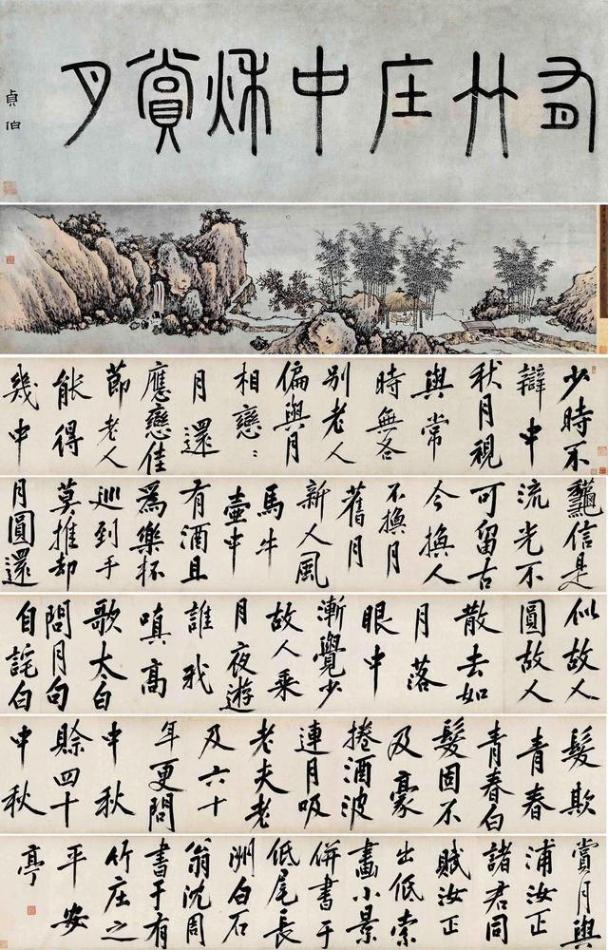 有竹庄中秌賞月
貞伯
少時不
辯中
秋月視
與常
時無各
別老人
偏與月
相戀〻
月還
應戀佳
節老人
能得
幾中
龝信是
流光不
可留古
今換人
不換月
舊月
新人風
馬牛
壺中
有酒且
為樂杯
巡到手
莫推却
月圓還
似故人
圓故人
散去如
月落
眼中
漸覺少
故人乘
月夜遊
誰我
嗔高
歌太白
問月句
自詫白
髮欺
青春
青春白
髮固不
及豪
捲酒波
連月吸
老夫老
及六十
年更問
中秋
賒四十
中秋
賞月與
浦汝正
諸君同
賦汝正
出低索
畫小景
併書于
低尾長
洲白石
翁沈周
書于有
竹庄之
平安
亭